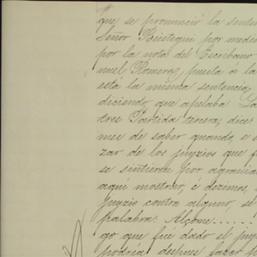 que se pronunció la senten
Señor Reistegui por medio
por la nota del Escribano
nuel Romero, puesta a la
está la misma sentencia,
diciendo que apelaba La
dres Partida tercera; dice
mes de saber quando, e
zar de los juyzios que f
se sintieren por agravia
aqui mostrar, é dezimos,
juyzio contra alguno, se
palabra: Alçome.....
go que fué dado el juy
podria